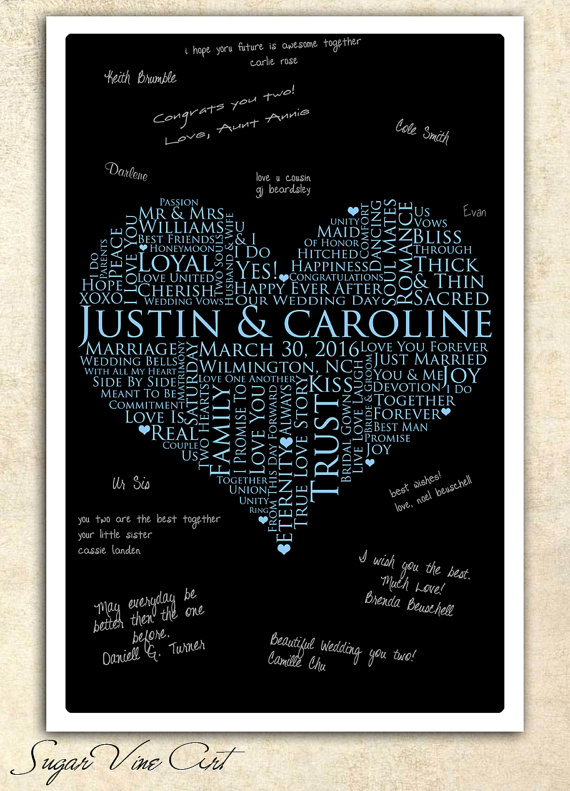 i hope yoru future is awesome together
carlie rose
Keith Brumble
Congrats you two!
Love, Aunt Annie
Cole Smith
Darlene
love u cousin
gj beardsley
Evan
Passion
Mr & Mrs
Williams
Best Friends
Honeymoon
Loyal
Love United
Cherish
Wedding Vows
I Do
Parents
Hope
XOXO
Peace
I Love You
Two Souls
Husband & Wife
U
& I
I Do
Yes!
Happy Ever After
Our Wedding Day
Unity
Maid
of Honor
Hitched
Happiness
Congratulations
Comfort
Dancing
Soul Mates
Romance
Us
Vows
Bliss
Through
Thick
& Thin
Sacred
Justin & Caroline
Marriage
Wedding Bells
With All My Heart
Side By Side
Meant To Be
Commitment
Love Is
Real
Couple
Us
Matrimony
Saturday
Two Hearts
March 30, 2016
Wilmington, NC
Love One Another
Kiss
Family
I Promise To
Love You
From This Day Forward
Always
Eternity
True Love Story
Trust
Together
Union
Unity
Ring
Bridal Gown
Live Love Laugh
Bride & Groom
Love You Forever
Just Married
You & Me
Joy
Devotion
I Do
Together
Forever
Best Man
Promise
Joy
Ur Sis
best wishes!
love, noel beuschell
you two are the best together
your little sister
cassie landen
I wish you the best.
Much Love!
Brenda Beuschell
May everyday be
better then the one
before.
Daniell G. Turner
Beautiful Wedding you two!
Camille Chu
Sugar Vine Art